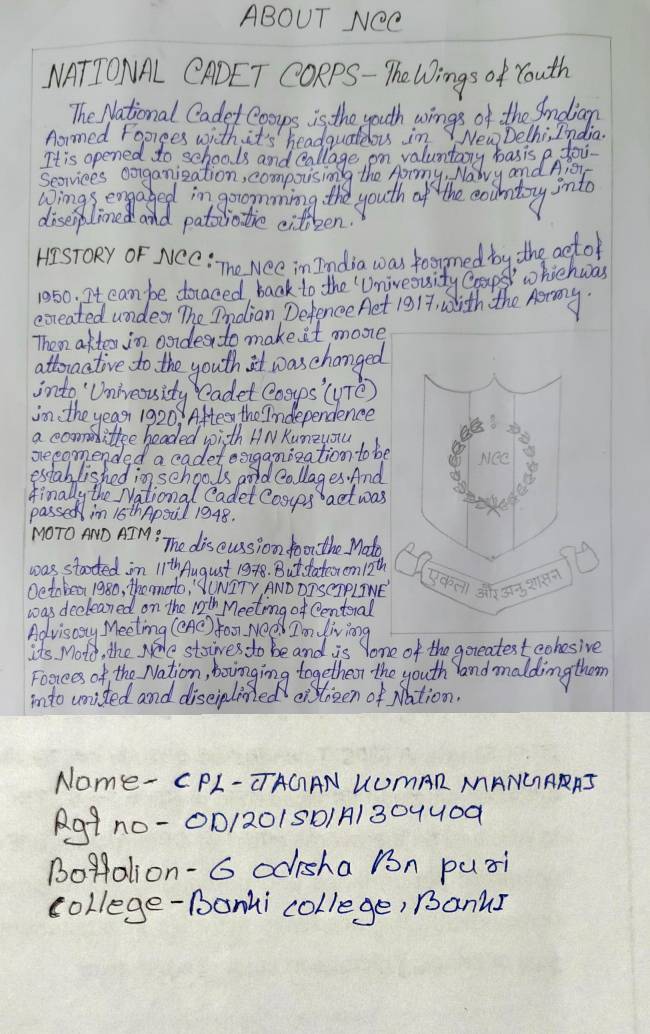 ABOUT NCC
NATIONAL CADET CORPS - The Wings of Youth
The National Cadet Coorps is the youth wings of the Indian
Aormed Foorces with it's headquateors in New Delhi, India.
It is opened to schools and Callage on voluntary basis a tori-
Seorvices oorganization, comporising the Army, Navy and Air-
Wings engaged in goromming the youth of the country into
disciplined and patriotic citizen.
HISTORY OF NCC: The NCC in India was formed by the act of
1950. It can be toraced back to the 'University Corps' which was
created under The Indian Defence Act 1917, with the Army.
Then after in order to make it more
attoractive to the youth it was changed
into 'University Cadet Corps' (UTC)
in the year 1920, After the Independence
a committee headed with HN Kunzuru
recomended a cadet organization to be
established in schools and Callages. And
finally the National Cadet Corps act was
passed in 16th April 1948.
NCC
एकता और अनुशासन
MOTO AND AIM: The discussion for the Moto
was started in 11th August 1978. But later on 12th
October 1980, the moto, 'UNITY AND DISCIPLINE'
was decleared on the 12th Meeting of Central
Advisory Meeting (CAC) for NCC. In living
its Moto, the NCC strives to be and is one of the greatest cohesive
Forces of the Nation, bringing together the youth and malding them
into united and disciplined citizen of Nation.
Name - CPL - JAGAN KUMAR MANGARAJ
Rgt no - OD/20/SD/A/304409
Battalion - 6 odisha Bn puri
College - Banki college, Banki